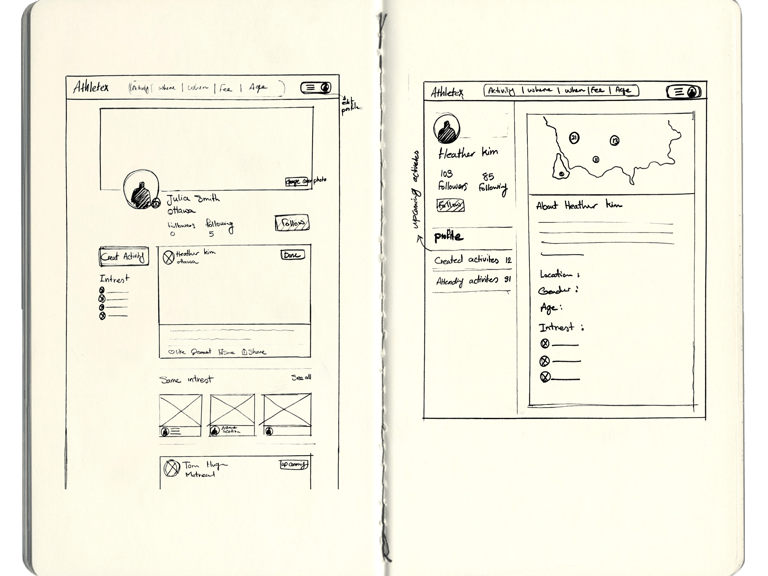 Athletex Activity | where | when | Fee | Age
edit profile
change cover photo
Julia Smith
ottawa
followers following
0 5
Follow
Creat Activity
Heather kim
ottawa
Done
Intrest
Like Comment Share
Same intrest See all
Tom
Montreal
upcoming
Athletex Activity | where | when | Fee | Age
Heather kim
103 85
Followers Following
Follow
upcoming activites
profile
Created activites 12
Attending activites 91
About Heather kim
Location :
Gender :
Age :
Intrest :